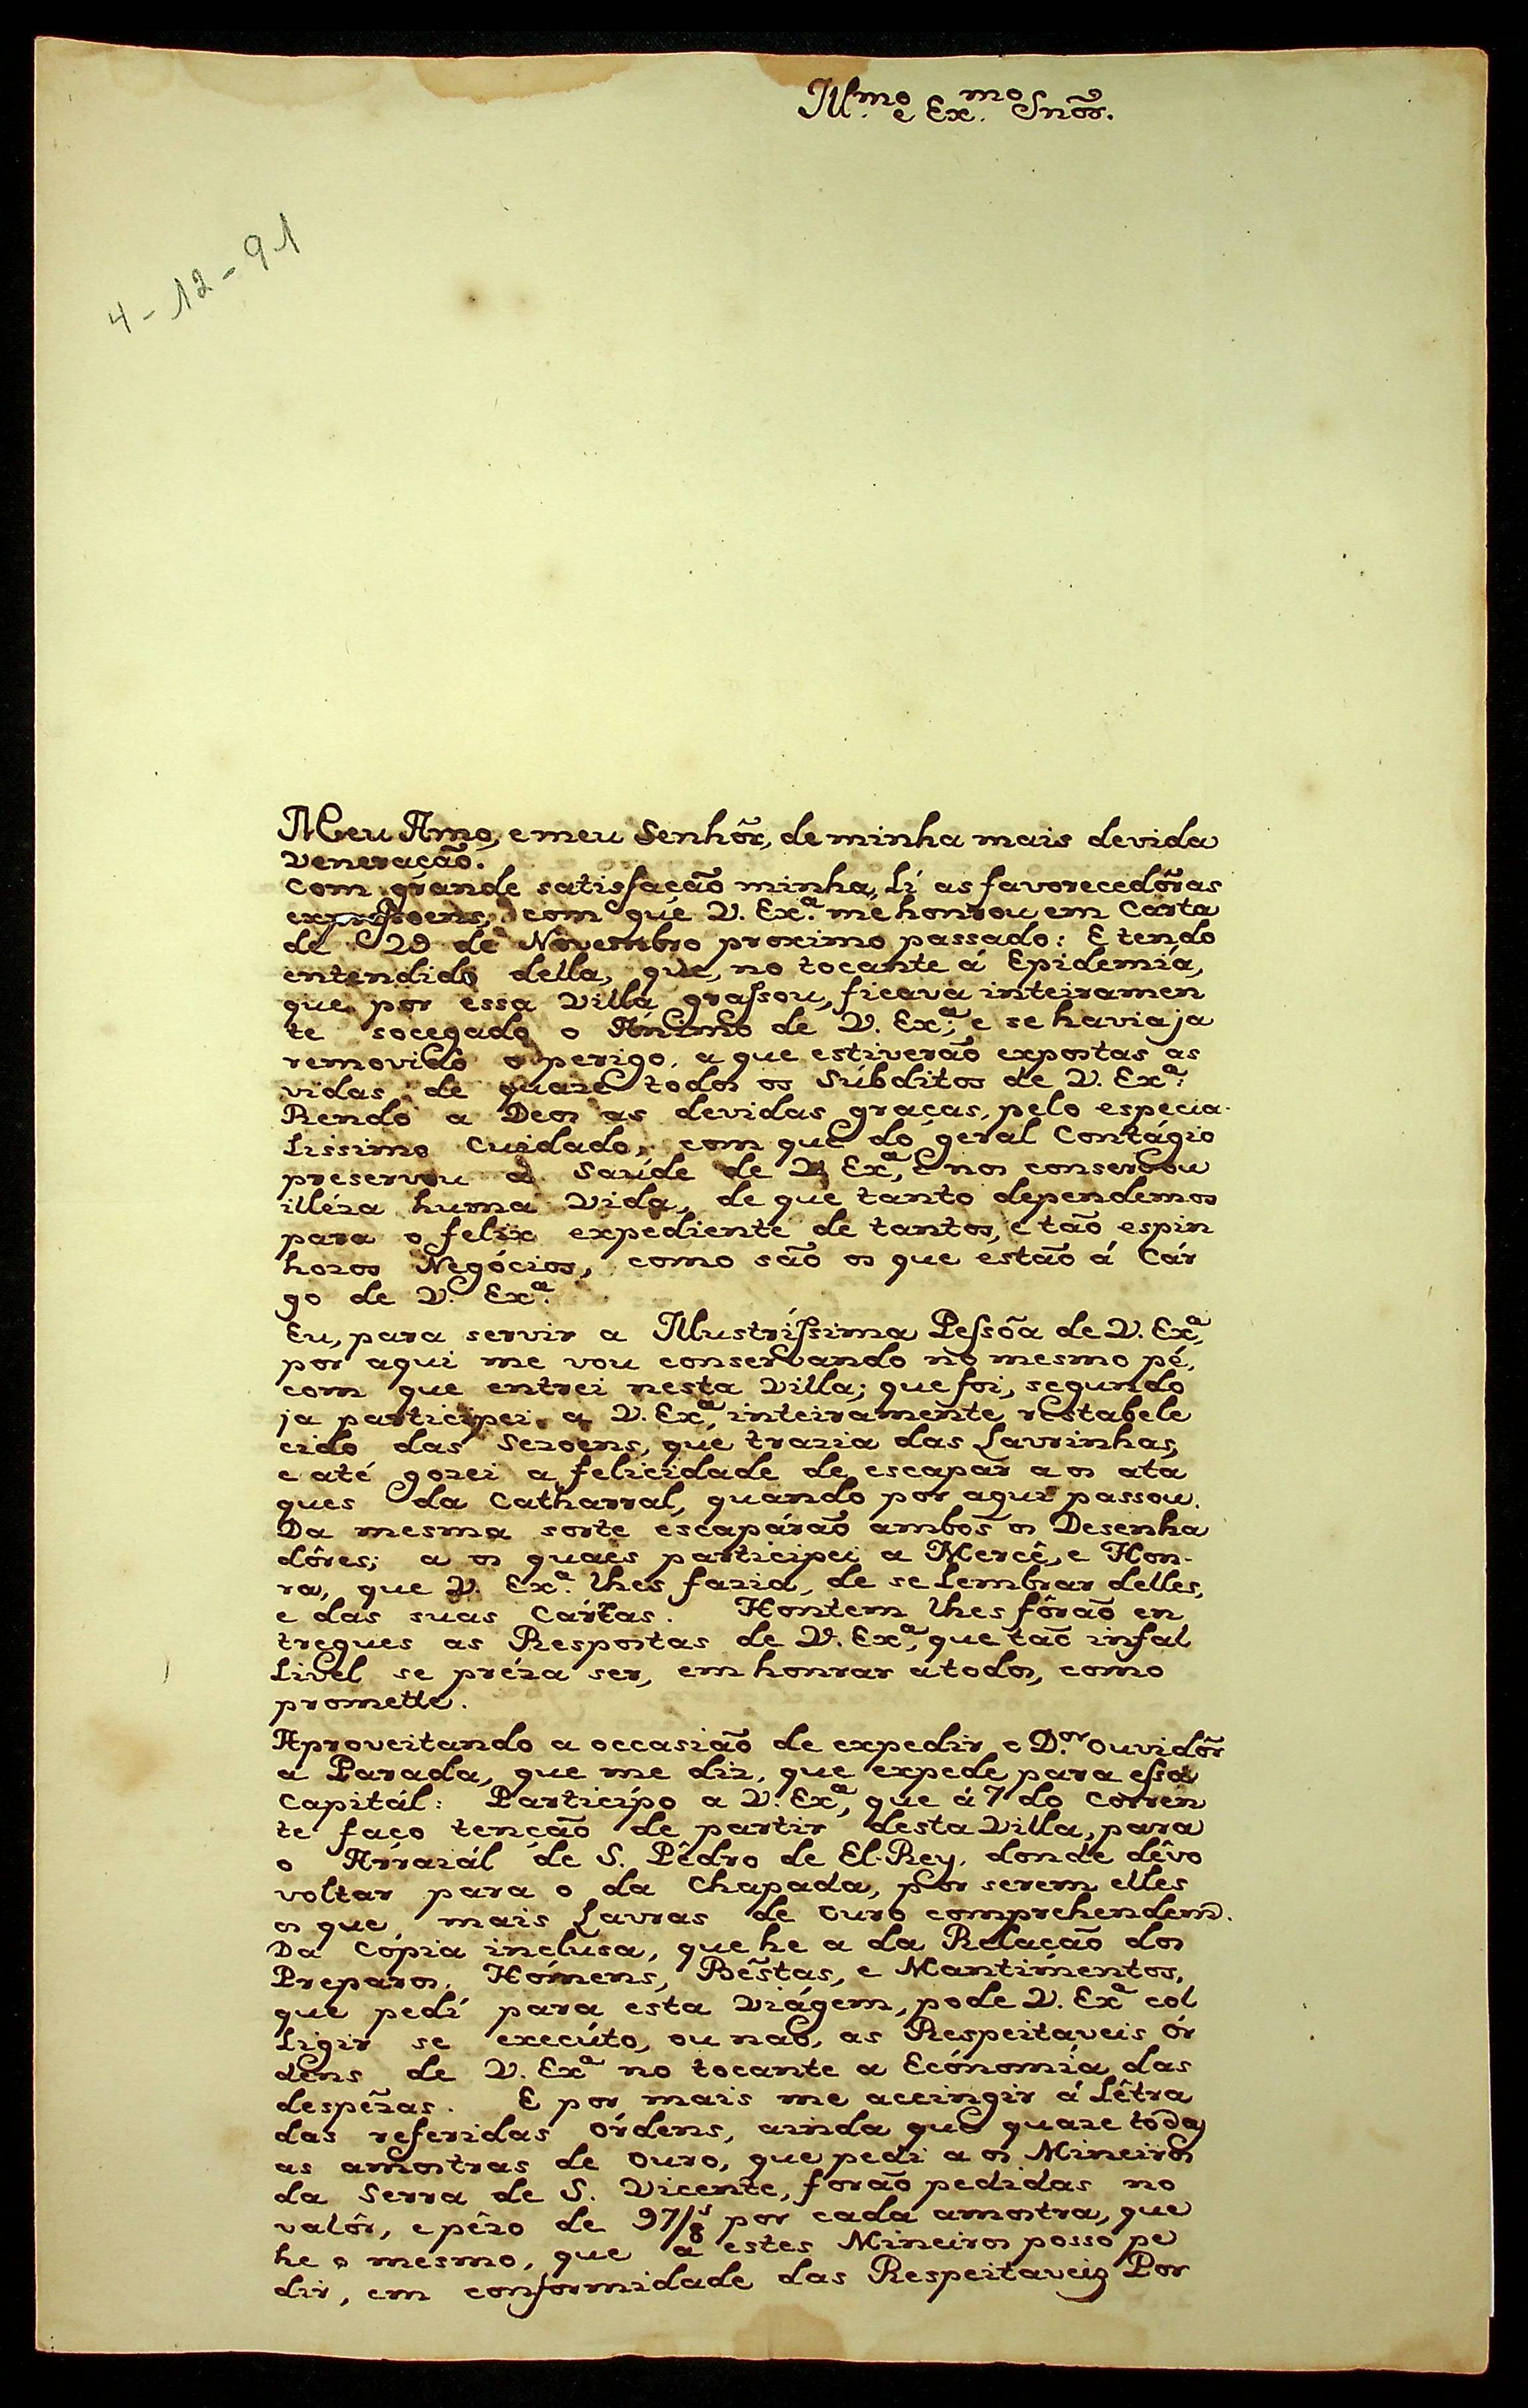 Ill.mo e Ex.mo Snõr.
4-12-91
Meu Amo, e meu Senhõr, de minha mais devida
veneração.
Com grande satisfação minha, lí as favorecedôras
expressoens, com que V. Ex.ª me honrou em Carta
de 29 de Novembro proximo passado: E tendo
entendido della, que, no tocante á Epidemía,
que por essa Villa grassou, ficava inteiramen
te socegado o Ánimo de V. Ex.ª, e se havia ja
removido o perigo, a que estiverão expostas as
vidas de quaze todos os Súbditos de V. Ex.ª
Rendo a Deos as devidas graças, pelo especia-
lissimo Cuidado, com que do geral Contágio
preservou a Saúde de V. Ex.ª, e nos conservou
illéza huma Vida, de que tanto dependemos
para o felix expediente de tantos, e tão espin
hozos Negócios, como são os que estão á Cár
go de V. Ex.ª
Eu, para servir a Illustríssima Pessôa de V. Ex.ª,
por aqui me vou conservando no mesmo pé,
com que entrei nesta Villa; que foi, segundo
ja participei a V. Ex.ª, inteiramente restabele
cido das Sezoens, que trazia das Lavrinhas,
e até gozei a felicidade de escapar aos ata
ques da Catharral, quando por aqui passou.
Da mesma sorte escapárão ambos os Desenha
dôres; a os quaes participei a Mercê, e Hon-
ra, que V. Ex.ª lhes fazia, de se lembrar delles,
e das suas Cártas. Hontem lhes fôrão en
tregues as Respostas de V. Ex.ª, que tão infal
livel se préza ser, em honrar a todos, como
promette.
Aproveitando a occasião de expedir o D.or Ouvidôr
a Parada, que me diz, que expede para essa
Capitál: Participo a V. Ex.ª, que á 7 do Corren
te faço tenção de partir desta Villa, para
o Arraiál de S. Pêdro de El-Rey, donde dêvo
voltar para o da Chapada, por serem elles
os que mais Lavras de Ouro comprehendem.
Da Cópia inclusa, que he a da Relação dos
Preparos, Hómens, Bêstas, e Mantimentos,
que pedí para esta Viágem, pode V. Ex.ª col
ligir se execúto, ou não, as Respeitaveis Ór
dens de V. Ex.ª no tocante a Ecónomía das
despêzas. E por mais me accingir á Lêtra
das referidas Órdens, ainda que quaze todas
as amostras de Ouro, que pedi a os Mineiros
da Serra de S. Vicente, forão pedidas no
valôr, e pêzo de 97/8s por cada amostra, que
he o mesmo, que a estes Mineiros posso pe
dir, em conformidade das Respeitaveis Por